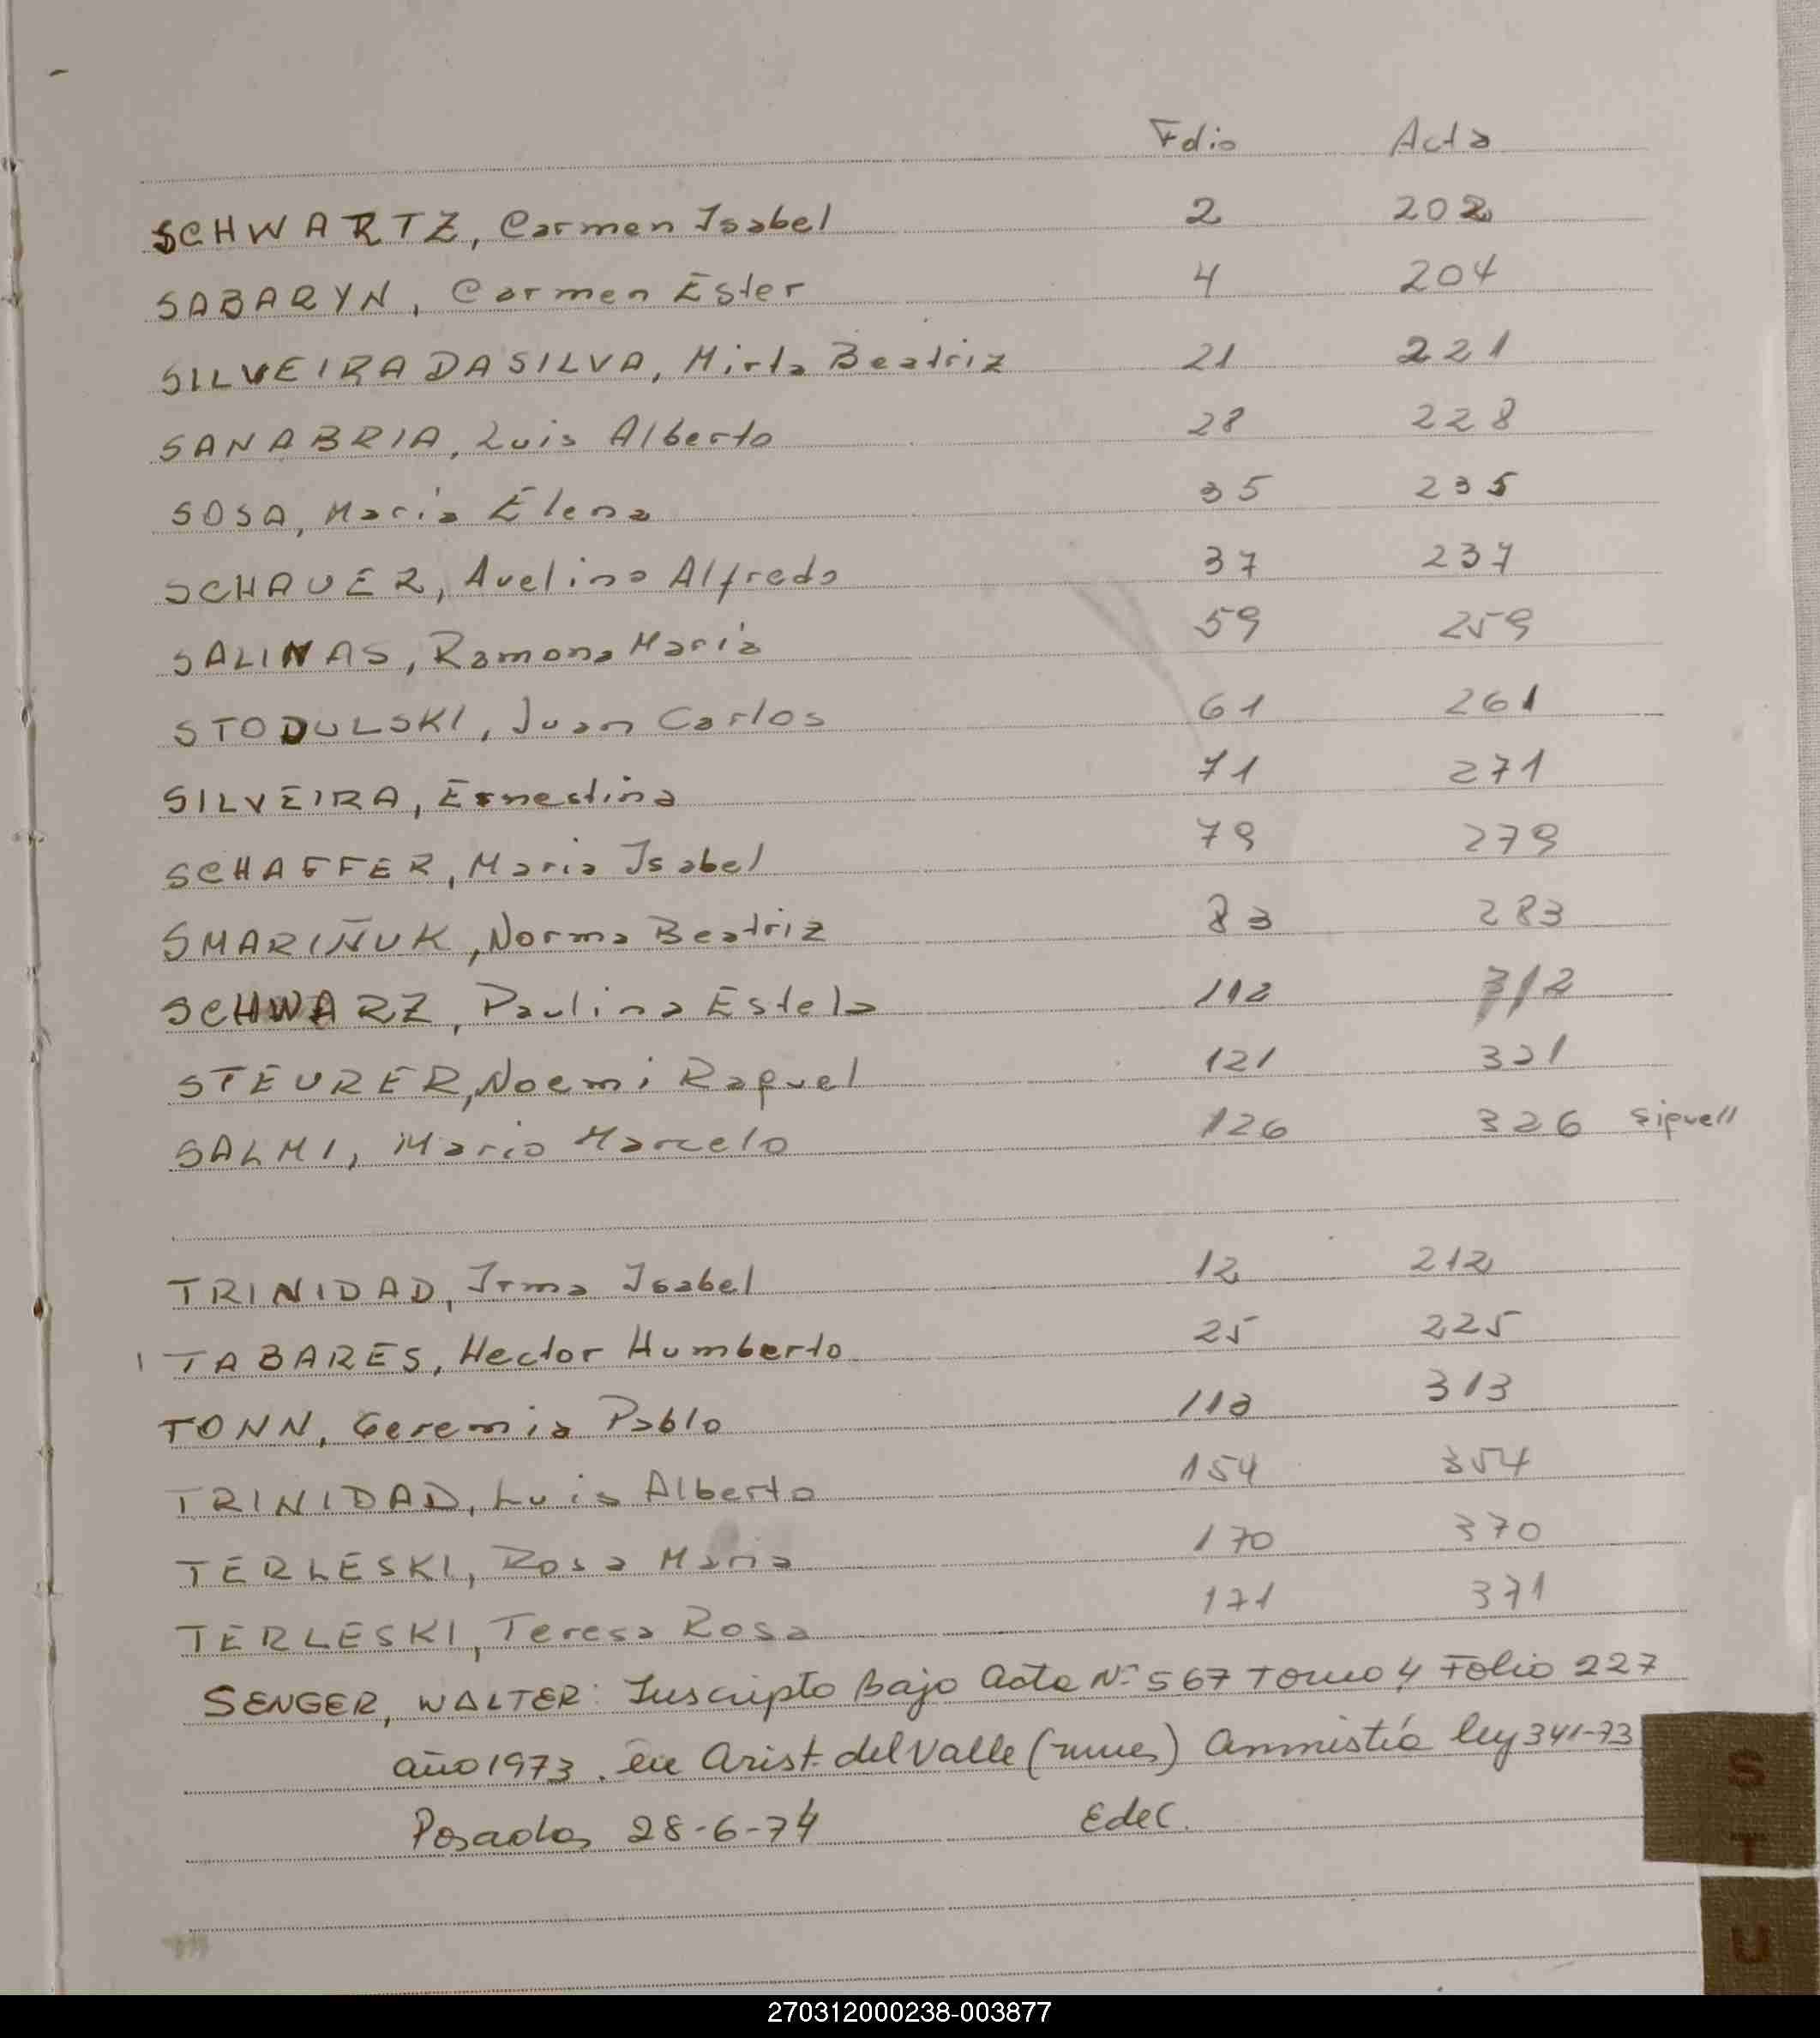 Folio Acta
SCHWARTZ, Carmen Isabel 2 202
SABARYN, Carmen Ester 4 204
SILVEIRA DA SILVA, Mirta Beatriz 21 221
SANABRIA, Luis Alberto 28 228
SOSA, Maria Elena 35 235
SCHAUER, Avelino Alfredo 37 237
SALINAS, Ramona Maria 59 259
STODULSKI, Juan Carlos 61 261
SILVEIRA, Ernestina 71 271
SCHAFFER, Maria Isabel 79 279
SMARIÑUK, Norma Beatriz 83 283
SCHWARZ, Paulina Estela 112 312
STEURER, Noemi Raquel 121 321
SALMI, Mario Marcelo 126 326
TRINIDAD, Irma Isabel 12 212
TABARES, Hector Humberto 25 225
TONN, Geremia Pablo 113 313
TRINIDAD, Luis Alberto 154 354
TERLESKI, Rosa Maria 170 370
TERLESKI, Teresa Rosa 171 371
SENGER, WALTER: Inscripto Bajo acta Nº 567 Tomo 4 Folio 227
año 1973. en Arist. del Valle (mnes) Amnistía ley 341-73
Posadas 28-6-74
S
T
U
270312000238-003877